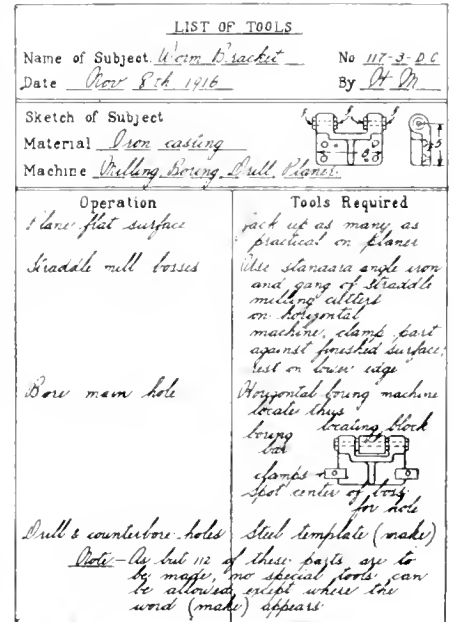 LIST OF TOOLS
Name of Subject Worm Bracket No 117-3-DC
Date Nov 8th 1916 By H M
Sketch of Subject
Material Iron casting
Machine Milling, Boring, Drill, Planer.
Operation Tools Required
Plane flat surface
Jack up as many as
practical on planer
Straddle mill bosses
Use standard angle iron
and gang of straddle
milling cutters
on horizontal
machine, clamp part
against finished surface,
rest on lower edge
Bore main hole
Horizontal boring machine
locate thus
locating block
boring
bar
clamps
spot center of boss
for hole
Drill & counterbore holes
Steel template (make)
Note - As but 112 of these parts are to
be made, no special tools can
be allowed, except where the
word (make) appears